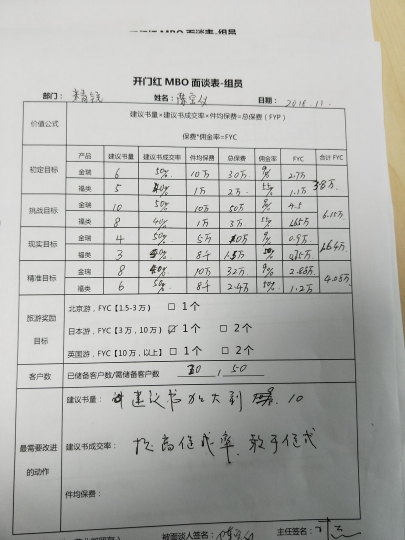 开门红 MBO 面谈表-组员
部门： 姓名： 日期：2018.11.
价值公式 建议书量×建议书成交率×件均保费=总保费（FYP）
保费*佣金率=FYC
产品 建议书量 建议书成交率 件均保费 总保费 佣金率 FYC 合计 FYC
初定目标 金瑞 6 50% 10万 30万 9% 2.7万 3.8万
福类 5 40% 1万 2万 55% 1.1万
挑战目标 金瑞 10 50% 10万 50万 9% 4.5 6.15万
福类 8 40% 1万 3万 55% 1.65万
现实目标 金瑞 4 50% 5万 10万 9% 0.9万 1.64万
福类 3 50% 8千 1.5万 50%
精准目标 金瑞 8 40% 10万 32万 9% 2.88万 4.08万
福类 6 50% 8千 2.4万 50% 1.2万
旅游奖励目标
北京游，FYC【1.5-3 万】 □ 1个
日本游，FYC【3 万，10 万】 ☑ 1个 □ 2个
英国游，FYC【10 万，以上】 □ 1个 □ 2个
客户数 已储备客户数/需储备客户数 20 / 50
最需要改进的动作
建议书量： 建议书加大到 10
建议书成交率： 提高促成率，敢于促成
件均保费：
被面谈人签名： 主任签名：